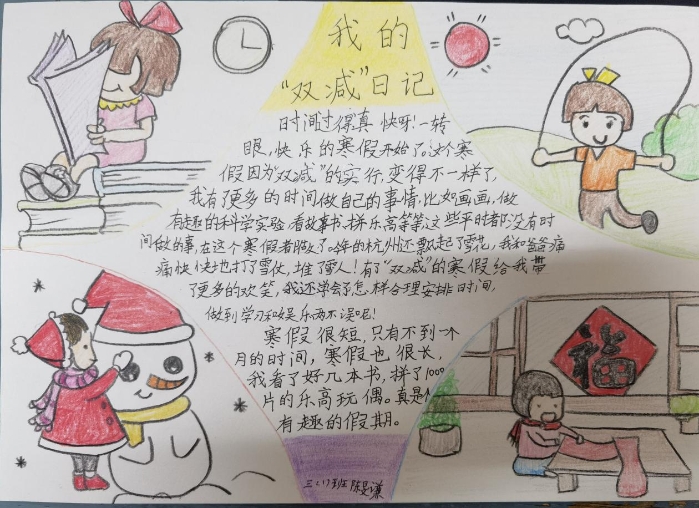 我的
"双减"日记
时间过得真快呀!一转
眼,快乐的寒假开始了。这个寒
假因为"双减"的实行,变得不一样了,
我有了更多的时间做自己的事情,比如画画,做
有趣的科学实验,看故事书,拼乐高等等,这些平时都没有时
间做的事,在这个寒假都做了。今年的杭州还飘起了雪花,我和爸爸痛
痛快快地打了雪仗,堆了雪人!有"双减"的寒假给我带
了更多的欢笑,我还学会了怎样合理安排时间,
做到学习和娱乐两不误呢!
寒假很短,只有不到一个
月的时间,寒假也很长,
我看了好几本书,拼了1000
片的乐高玩偶。真是个
有趣的假期。
福
三(1)班 陈
谦